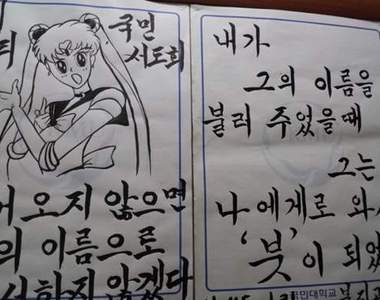 국민
서도회
오지 않으면
의 이름으로
않겠다
내가
그의 이름을
불러 주었을때
그는
나에게로 와
'붓'이 되었
국민대학교